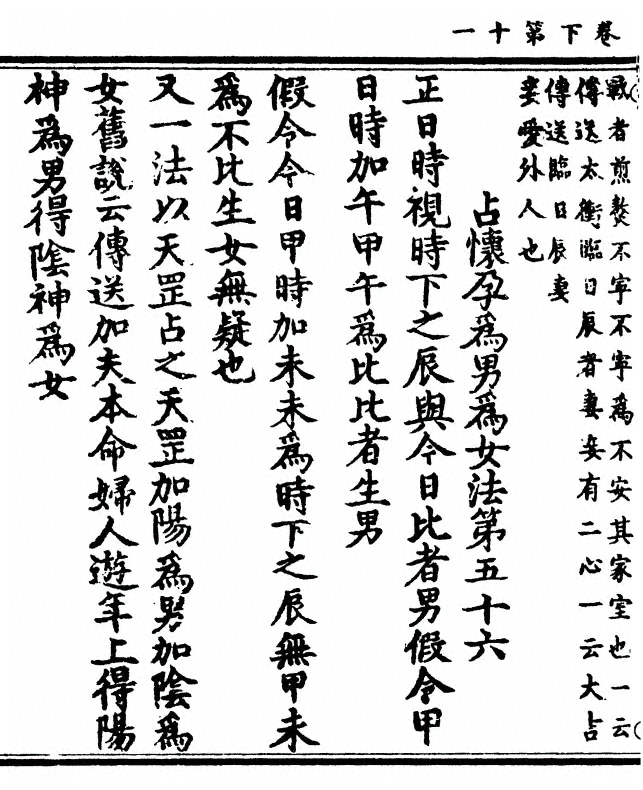 卷下第十一
戰者煎熬不寧不寧為不安其家室也一云
傳送太衝臨日辰者妻妾有二心一云大吉
傳送臨日辰妻
妾愛外人也
占懷孕為男為女法第五十六
正日時視時下之辰與今日比者男假令甲
日時加午甲午為比比者生男
假令今日甲時加未未為時下之辰無甲未
為不比生女無疑也
又一法以天罡占之天罡加陽為男加陰為
女舊說云傳送加夫本命婦人遊年上得陽
神為男得陰神為女